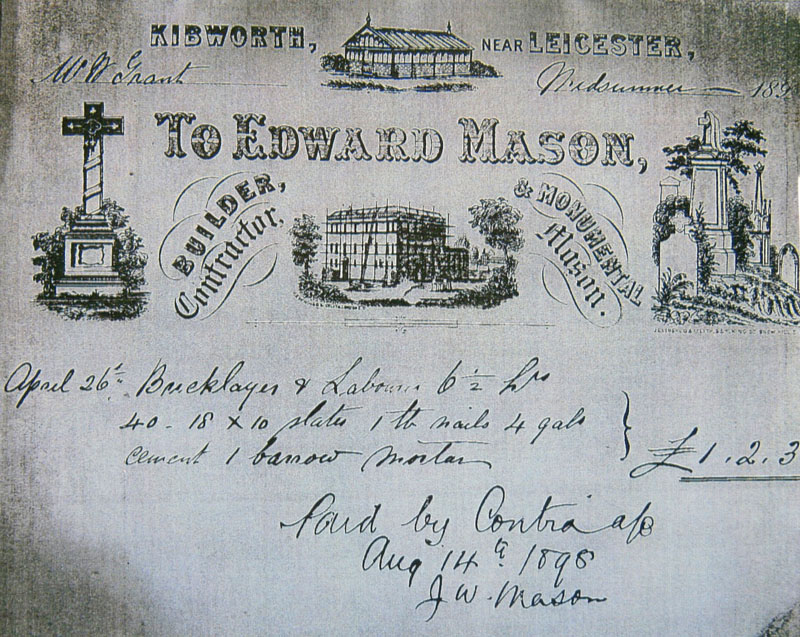 KIBWORTH, NEAR LEICESTER,
Mr W Grant Midsummer 189
TO EDWARD MASON,
BUILDER, Contractor, & MONUMENTAL Mason.
April 26th Bricklayer & Labourer 6 ½ hrs
40 - 18 x 10 slates 1 lb nails 4 gals
cement 1 barrow mortar £1.2.3
Paid by Contra a/c
Aug 14th 1898
J W. Mason